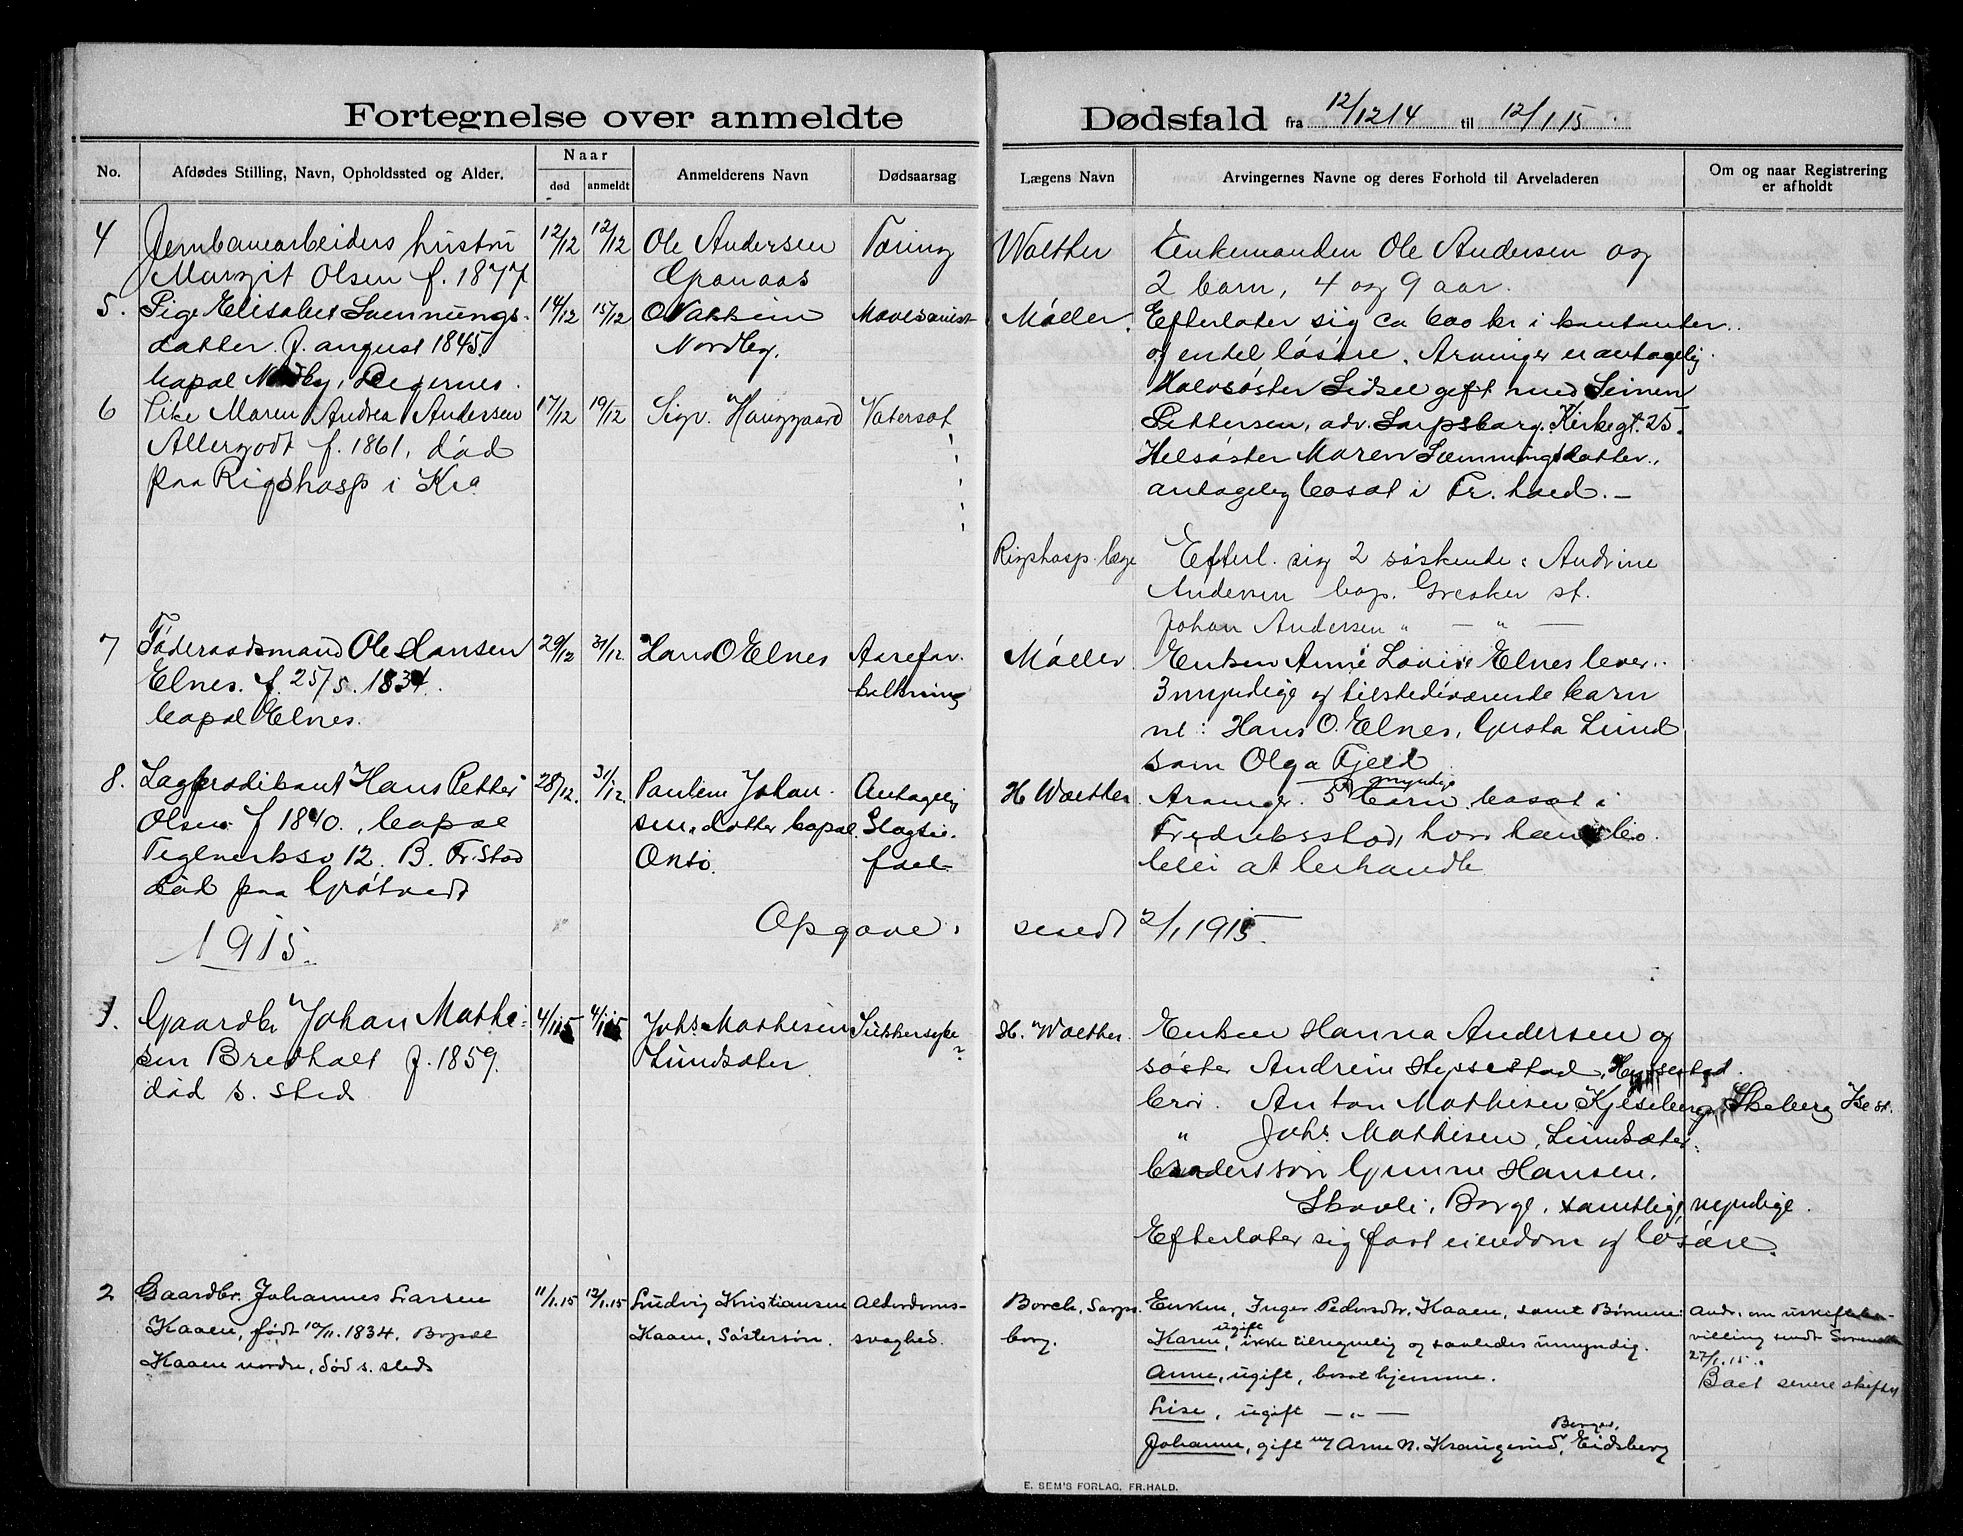 Fortegnelse over anmeldte Dødsfald fra 12/12 14 til 12/1.15.
No. Afdødes Stilling, Navn, Opholdssted og Alder. Naar død anmeldt Anmelderens Navn Dødsaarsag Lægens Navn Arvingernes Navne og deres Forhold til Arveladeren Om og naar Registrering er afholdt
4 Jernbanearbeiders hustru 12/12 12/12 Ole Andersen Tæring Walther Enkemanden Ole Andersen og
Margit Olsen f. 1877 2 barn, 4 og 9 aar.
5. Pige Elisabet Lemmings- 14/12 15/12 O Nakkim Møller. Efterlater sig ca 600 kr i kontanter
datter. f. august 1845. Nordby. og endel løsøre. Arvinger er antagelig
bopæl Nordby, Degernes. Halvsøster Lidsel gift med Simen
6 Pike Maren Andrea Andersen 17/12 19/12 Sigv. Hauggaard Vatersot Pettersen, adr. Sarpsborg. Kirkegt. 25.
Allergodt f. 1861, død Helsøster Maren Lemmingsdatter,
paa Rigshosp i Kra antagelig bosat i Fr.hald. –
Rigshosp. læge Efterl. sig 2 søskende: Andrine
Andersen bop. Greaker st.
Johan Andersen " — " —
7 Føderaadsmand Ole Hansen 29/12 31/12. Hans O Elnes Aarefor- Møller Enken Anne Lovise Elnes lever.
Elnes. f. 25/5. 1834. kalkning 3 myndige og tilstedeværende barn
bopæl Elnes. nl: Hans O. Elnes, Gusta Lund
som Olga Fjeld
8. Lægprædikant Hans Petter 28/12. 31/12. Pauline Johan- Antagelig H Walther Arvinger. 5 myndige barn bosat i
Olsen f 1840., bopæl sen, datter bopæl Slagtil- Fredriksstad, hvor han blo
Teglverksv 12. B. Fr.stad Onsø. fæl- blei at behandle
død paa Grøtvedt
Opgave sendt 2/1 1915.
1915.
1. Gaardbr Johan Mathi- 4/1 15 4/1 15 Johs. Mathisen Sukkersyke? H. Walther. Enken Hanna Andersen og
sen Bredholt f. 1859. Lundsæter søster Andrine Hyssestad, Hyssestad.
død s. sted bror. Anton Mathisen Kjeseberg, Skeberg Ise st.
" Johs. Mathisen, Lundsæter.
brodersøn Gunne Hansen,
Skovli, Borge, samtlige myndige.
Efterlater sig fast eiendom og løsøre.
2 Gaardbr. Johannes Larsen 11/1.15 12/1.15 Ludvig Kristiansen Alderdoms- Borch, Sarps- Enken, Inger Pedersdtr. Kaaen, samt Børnene:
Kaaen, født 10/11. 1834. Bopæl Kaaen, Søstersøn. svaghed. borg. Karen, ugift, ikke tilregnelig og saaledes umyndig.
Kaaen nordre, død s. steds Anne, ugift, bosat hjemme.
Lise, ugift — " —
Johanne, gift m/ Arne N. Kraugerud, Berger, Eidsberg
Andr. om uskiftebe-
villing sendt Sorenskr.
27/1.15.
Boet senere skiftet
E. SEM'S FORLAG, FR.HALD.